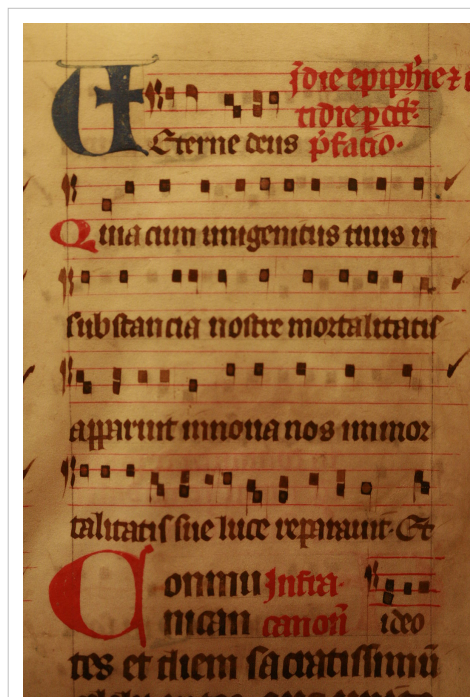 In die epiphie et i
n die p oct
Eterne deus p̄facio.
Quia cum unigenitus tuus in
substancia nostre mortalitatis
apparuit innoua nos inmor
talitatis sue luce reparauit. Et
Conmu Infra
nican canoñ ideo
tes et diem sacratissimū